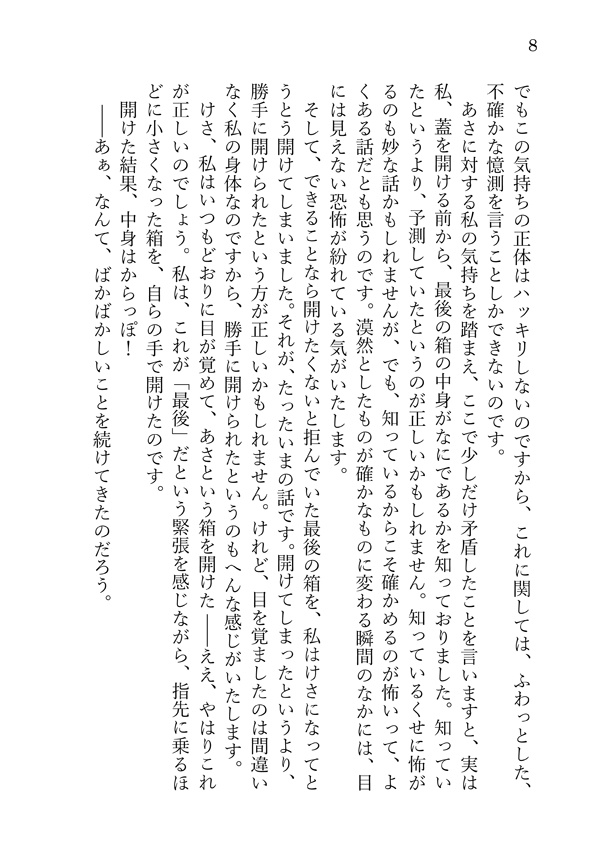 8
でもこの気持ちの正体はハッキリしないのですから、これに関しては、ふわっとした、
不確かな憶測を言うことしかできないのです。
あさに対する私の気持ちを踏まえ、ここで少しだけ矛盾したことを言いますと、実は
私、蓋を開ける前から、最後の箱の中身がなにであるかを知っておりました。知ってい
たというより、予測していたというのが正しいかもしれません。知っているくせに怖が
るのも妙な話かもしれませんが、でも、知っているからこそ確かめるのが怖いって、よ
くある話だとも思うのです。漠然としたものが確かなものに変わる瞬間のなかには、目
には見えない恐怖が紛れている気がいたします。
そして、できることなら開けたくないと拒んでいた最後の箱を、私はけさになってと
うとう開けてしまいました。それが、たったいまの話です。開けてしまったというより、
勝手に開けられたという方が正しいかもしれません。けれど、目を覚ましたのは間違い
なく私の身体なのですから、勝手に開けられたというのもへんな感じがいたします。
けさ、私はいつもどおりに目が覚めて、あさという箱を開けた――ええ、やはりこれ
が正しいのでしょう。私は、これが「最後」だという緊張を感じながら、指先に乗るほ
どに小さくなった箱を、自らの手で開けたのです。
開けた結果、中身はからっぽ！
――あぁ、なんて、ばかばかしいことを続けてきたのだろう。